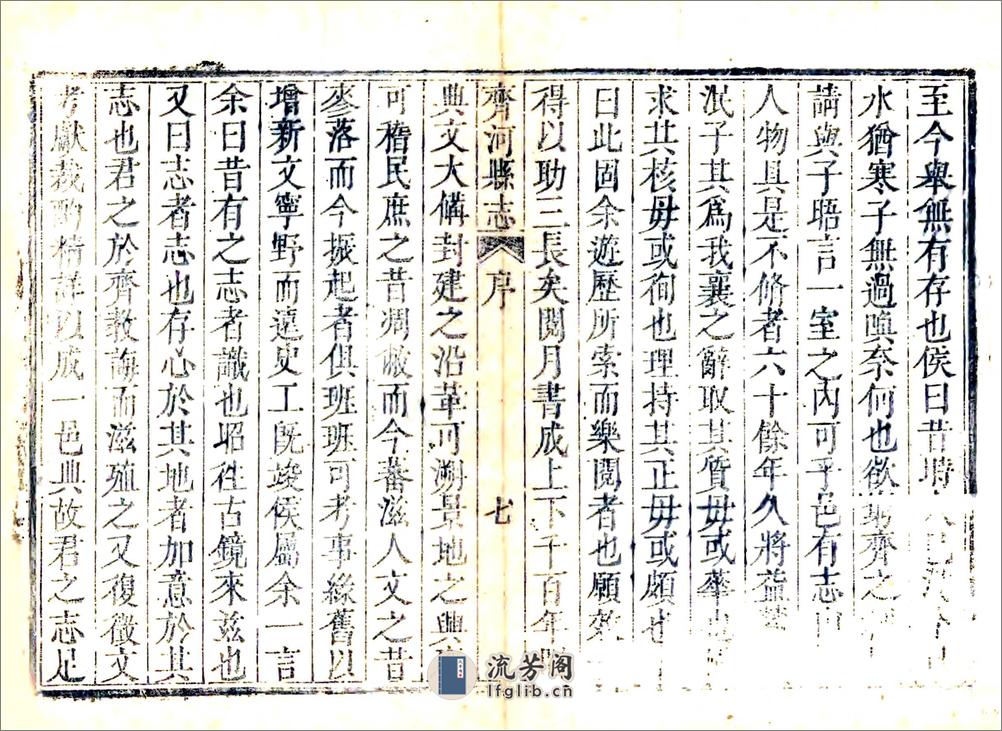 至今舉無有存也侯曰昔時
水猶寒子無過喚奈何也欲　齊之
請與子晤言一室之內可乎邑有志
人物具是不脩者六十餘年久將
泯子其爲我襄之辭取其質毋或華
求其核毋或徇也理持其正毋或頗也
曰此固余遊歷所索而樂閱者也願
得以助三長矣閱月書成上下千百年
齊河縣志　序　七
典文大備封建之沿革可溯景地之興
可稽民庶之昔凋敝而今蕃滋人文之昔
寥落而今振起者俱班班可考事緣舊以
增新文寧野而遠史工旣竣侯屬余一言
余曰昔有之志者識也昭徃古鏡來兹也
又曰志者志也存心於其地者加意於其
志也君之於齊教誨而滋殖之又復徵文
考獻裁酌精詳以成一邑典故君之志足
流芳阁
lfglib.cn